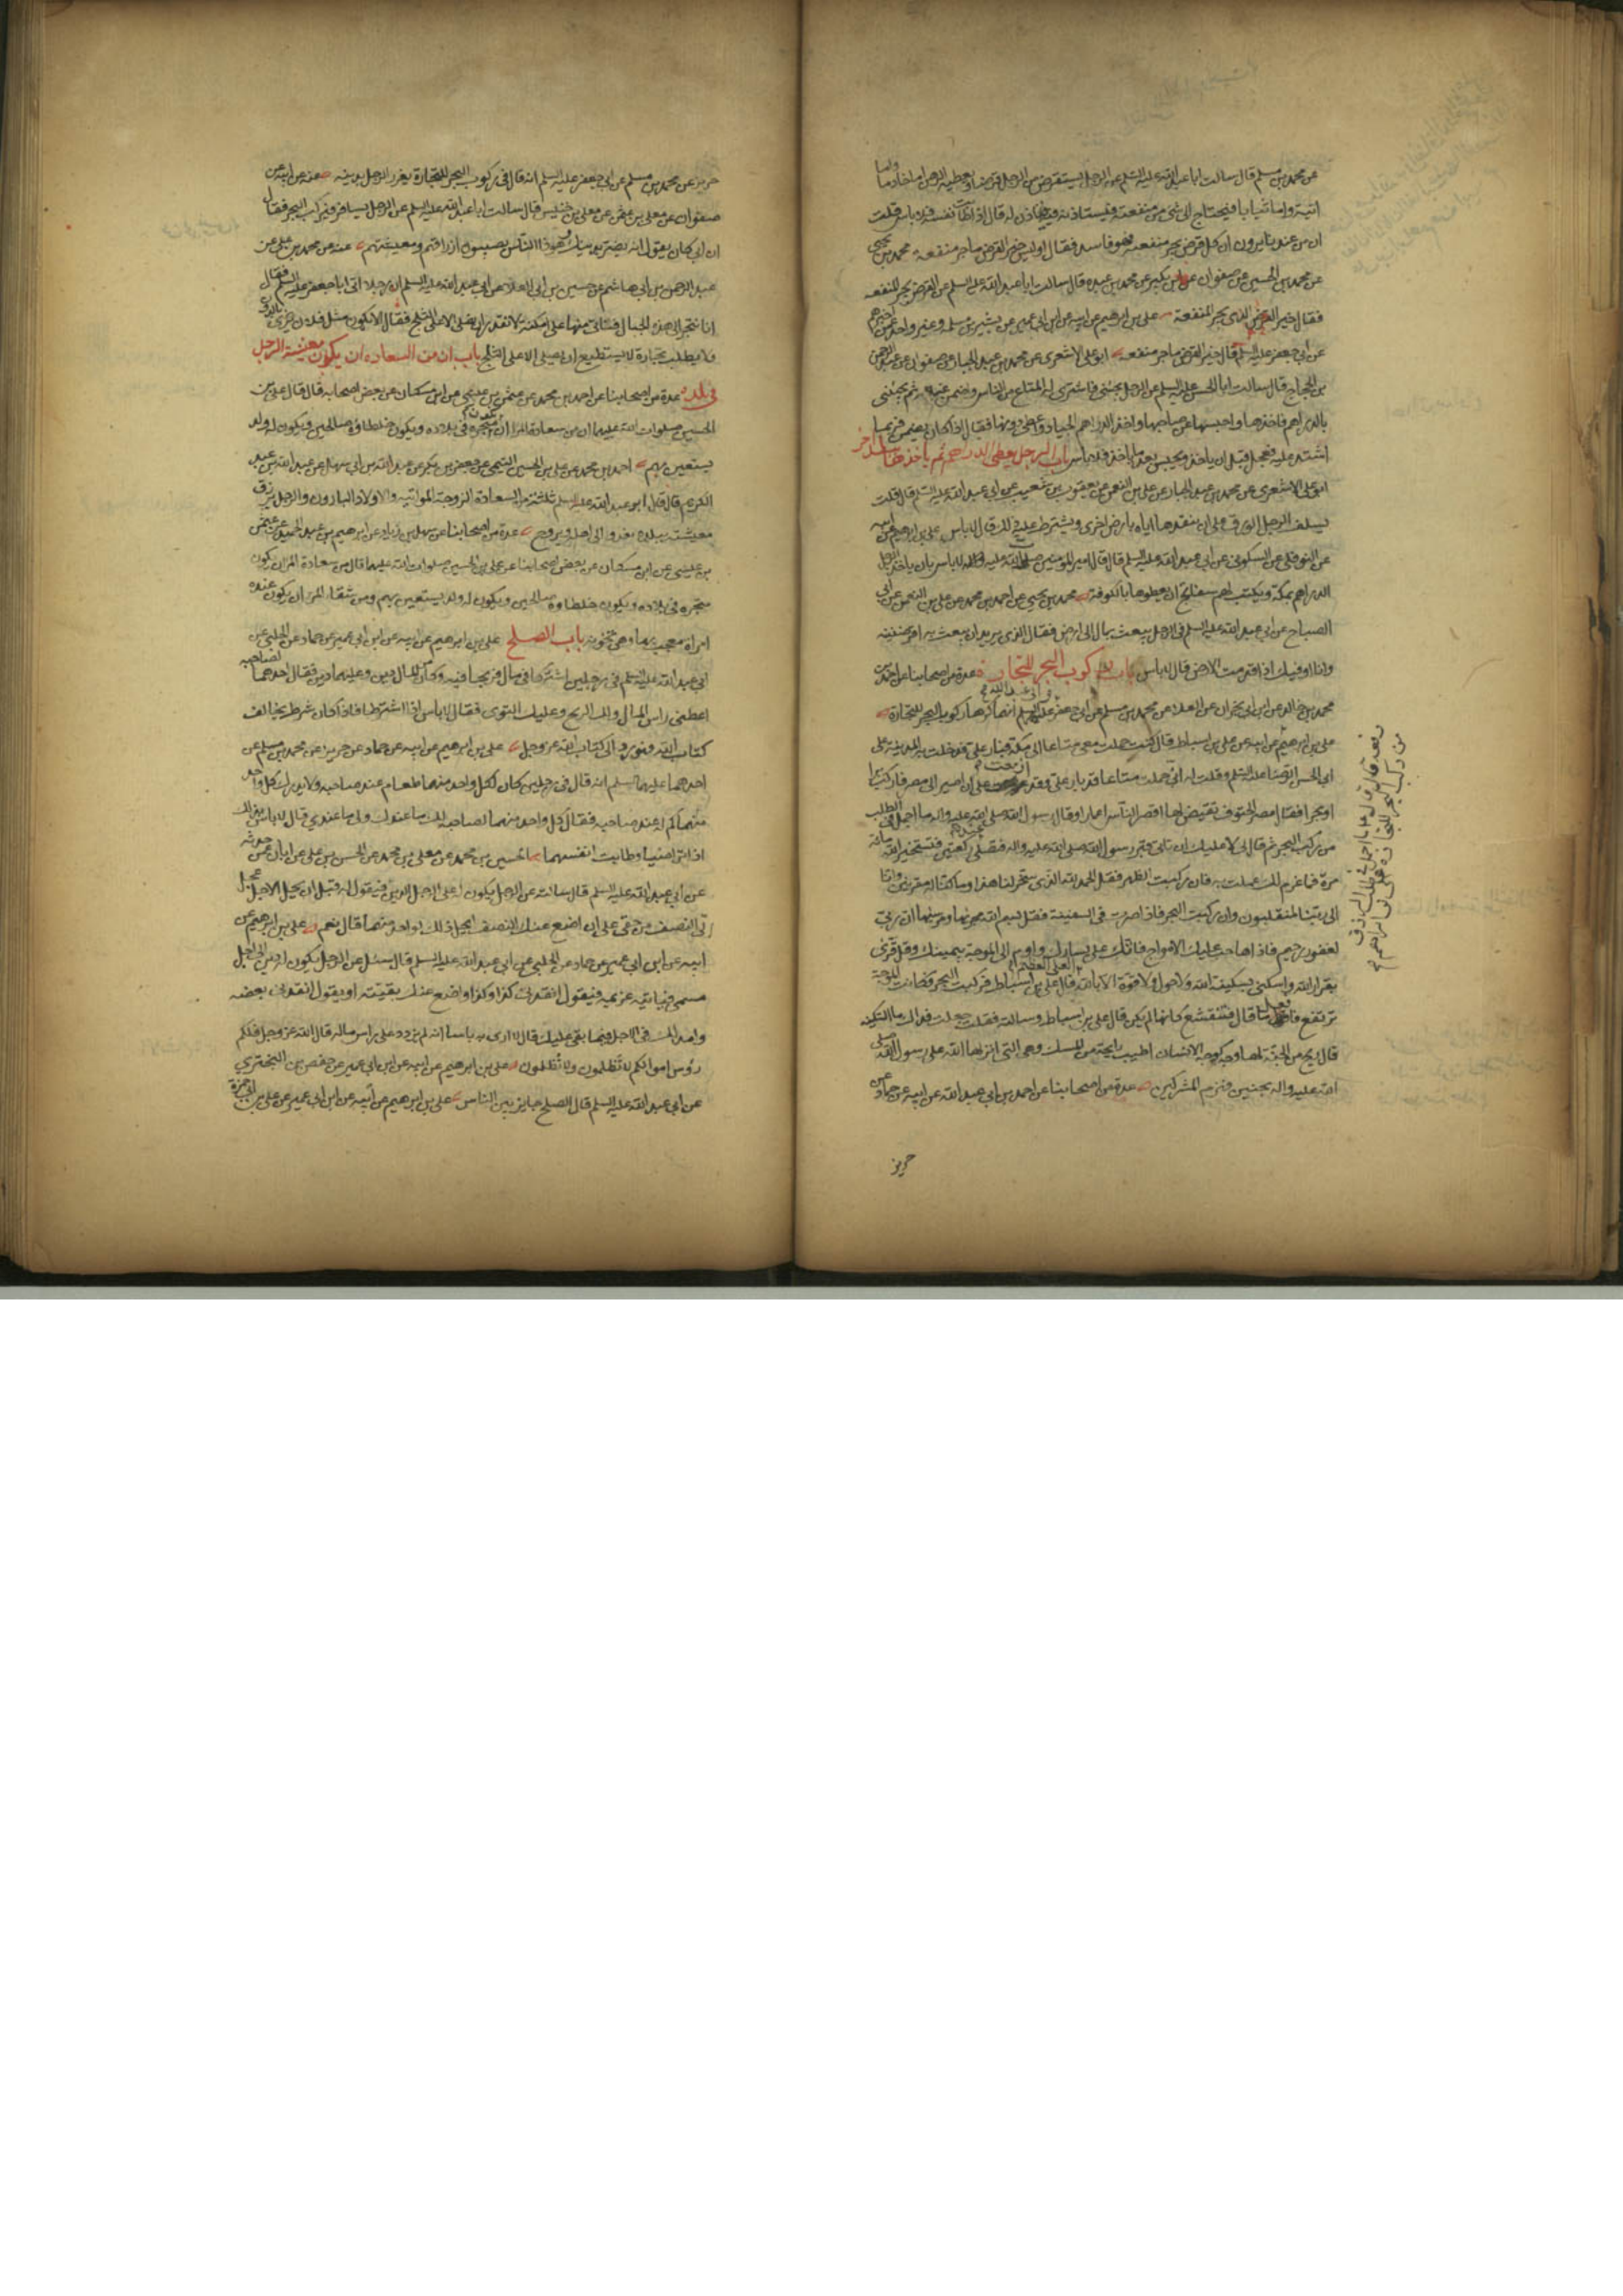 عن محمد بن مسلم قال سالت ابا عبد الله عليه السلم عن الرجل يستقرض من الرجل قرضا ويعطيه الرهن اما خادما واما
انية واما ثيابا فيحتاج الى شئ من منفعته فيستاذنه فيه فياذن له قال اذا طابت نفسه فلا باس قلت
ان من عندنا يروون ان كل قرض يجر منفعة فهو فاسد فقال اوليس خير القرض ما جر منفعة محمد بن يحيى
عن محمد بن الحسين عن صفوان عن ابن بكير عن محمد بن عبده قال سالت ابا عبد الله عليه السلم عن القرض يجر المنفعه
فقال خير القرض الذى يجر المنفعة على بن ابرهيم عن ابيه عن ابن ابى عمير عن بشير بن مسلمة وغير واحد عمن اخبرهم
عن ابى جعفر عليه السلم قال خير القرض ما جر منفعه ابو على الاشعرى عن محمد بن عبد الجبار عن صفوان عن عبد الرحمن
بن الحجاج قال سالت ابا الحسن عليه السلم عن الرجل يجيئنى فاشترى له المتاع من الناس واضمن عنه ثم يجيئنى
بالدراهم فاخذها واحبسها عن صاحبها واخذ الدراهم الجياد واعطى دونها فقال اذا كان يضمن فربما
اشتد عليه فعجل قبل ان ياخذ ويحبس بعد ما ياخذ فلا باس باب الرجل يعطى الدراهم ثم ياخذها ببلد اخر
ابو على الاشعرى عن محمد بن عبد الجبار عن على بن النعمن عن يعقوب بن شعيب عن ابى عبد الله عليه السلم قال قلت
يسلف الرجل الورق على ان ينقدها اياه بارض اخرى ويشترط عليه ذلك قال لا باس على بن ابرهيم عن ابيه
عن النوفلى عن السكونى عن ابى عبد الله عليه السلم قال قال امير المؤمنين صلوات الله عليه لا باس بان ياخذ الرجل
الدراهم بمكة ويكتب لهم سفاتج ان يعطوها بالكوفة محمد بن يحيى عن احمد بن محمد عن على بن النعمن عن ابى
الصباح عن ابى عبد الله عليه السلم فى الرجل يبعث بمال الى ارض فقال الذى يريد ان يبعث به اقرضنيه
وانا اوفيك اذا قدمت الارض قال لا باس باب ركوب البحر للتجارة عدة من اصحابنا عن احمد بن
محمد بن خالد عن ابن ابى نجران عن العلاء عن محمد بن مسلم عن ابى جعفر وابى عبد الله عليهم السلم انهما كرها ركوب البحر للتجارة
على بن ابرهيم عن ابيه عن على بن اسباط قال كنت حملت معى متاعا الى مكة فبار على فدخلت به المدينة على
ابى الحسن الرضا عليه السلم وقلت له انى حملت متاعا قد بار على وقد عزمت على ان اصير الى مصر فاركب برا
او بحرا فقال مصر الحتوف تقيض لها اقصر الناس اعمارا وقال رسول الله صلى الله عليه واله ما اجمل فى الطلب
من ركب البحر ثم قال لى لا عليك ان تاتى قبر رسول الله صلى الله عليه واله فتصلى عنده ركعتين فتستخير الله مائة
مرة فما عزم لك عملت به فان ركبت الظهر فقل الحمد لله الذى سخر لنا هذا وما كنا له مقرنين وانا
الى ربنا لمنقلبون وان ركبت البحر فاذا صرت فى السفينة فقل بسم الله مجريها ومرسيها ان ربى
لغفور رحيم فاذا هاجت عليك الامواج فاتك على يسارك واوم الى الموجة بيمينك وقل قرى
بقرار الله واسكنى بسكينة الله ولا حول ولا قوة الا بالله العلى العظيم قال على بن اسباط فركبت البحر فكانت الموجة
ترتفع فاقول ما قال فتنقشع كانها لم تكن قال على بن اسباط وسالته فقلت جعلت فداك ما السكينه
قال ريح من الجنة لها وجه كوجه الانسان اطيب رايحة من المسك وهى التى انزلها الله على رسول الله صلى
الله عليه واله بحنين فهزم المشركين عدة من اصحابنا عن احمد بن ابى عبد الله عن ابيه عن حماد عن
حريز
من ركب البحر للتجارة
حريز عن محمد بن مسلم عن ابى جعفر عليه السلم انه قال فى ركوب البحر للتجارة يغرر الرجل بدينه عنه عن ابيه عن
صفوان عن معلى بن عثمن عن معلى بن خنيس قال سالت ابا عبد الله عليه السلم عن الرجل يسافر فيركب البحر فقال
ان ابى كان يقول انه يضر بدينك هو ذا الناس يصيبون ارزاقهم ومعيشتهم عنه عن محمد بن على عن
عبد الرحمن بن ابى هاشم عن حسين بن ابى العلاء عن ابى عبد الله عليه السلم ان رجلا اتى ابا جعفر عليه السلم فقال
انا نتجر الى هذه الجبال فناتى منها على امكنة لا نقدر ان نصلى الا على الثلج فقال الا تكون مثل فلان يرضى بالدون
ولا يطلب تجارة لا يستطيع ان يصلى الا على الثلج باب ان من السعاده ان يكون معيشة الرجل
فى بلده عدة من اصحابنا عن احمد بن محمد عن عثمن بن عيسى عن ابن مسكان عن بعض اصحابه قال قال على بن
الحسين صلوات الله عليهما ان من سعادة المرا ان يكون متجره فى بلاده ويكون خلطاؤه صالحين ويكون له ولد
يستعين بهم احمد بن محمد عن على بن الحسين التيمى عن جعفر بن بكر عن عبد الله بن ابى سهل عن عبد الله بن عبد
الكريم قال قال ابو عبد الله عليه السلم ثلثة من السعادة الزوجة المواتيه والاولاد البارون والرجل يرزق
معيشته ببلده يغدو الى اهله ويروح عدة من اصحابنا عن سهل بن زياد عن ابرهيم بن عبد الحميد عن عثمن
بن عيسى عن ابن مسكان عن بعض اصحابنا عن على بن الحسين صلوات الله عليهما قال من سعادة المرا ان يكون
متجره فى بلاده ويكون خلطاؤه صالحين ويكون له ولد يستعين بهم ومن شقاء المرء ان يكون عنده
امراة معجب بها وهى تخونه باب الصلح على بن ابرهيم عن ابيه عن ابن ابى عمير عن حماد عن الحلبى عن
ابى عبد الله عليه السلم فى رجلين اشتركا فى مال فربحا فيه وكان من المال دين وعليهما دين فقال احدهما لصاحبه
اعطنى راس المال ولك الربح وعليك التوى فقال لا باس اذا اشترطا فاذا كان شرط يخالف
كتاب الله فهو رد الى كتاب الله عز وجل على بن ابرهيم عن ابيه عن حماد عن حريز عن محمد بن مسلم عن
احدهما عليهما السلم انه قال فى رجلين كان لكل واحد منهما طعام عند صاحبه ولا يدرى كل واحد
منهما كم له عند صاحبه فقال كل واحد منهما لصاحبه لك ما عندك ولى ما عندى قال لا باس بذلك
اذا تراضيا وطابت انفسهما الحسين بن محمد عن معلى بن محمد عن الحسن بن على عن ابان عمن حدثه
عن ابى عبد الله عليه السلم قال سالته عن الرجل يكون له على الرجل الدين فيقول له قبل ان يحل الاجل عجل
لى النصف من حقى على ان اضع عنك النصف ايحل ذلك لواحد منهما قال نعم على بن ابرهيم عن
ابيه عن ابن ابى عمير عن حماد عن الحلبى عن ابى عبد الله عليه السلم قال سئل عن الرجل يكون له دين الى اجل
مسمى فياتيه غريمه فيقول انقدنى كذا وكذا واضع عنك بقيته او يقول انقدنى بعضه
وامد لك فى الاجل فيما بقى عليك قال لا ارى به باسا انه لم يزدد على راس ماله قال الله عز وجل فلكم
رؤس اموالكم لا تظلمون ولا تظلمون على بن ابرهيم عن ابيه عن ابن ابى عمير عن حفص بن البخترى
عن ابى عبد الله عليه السلم قال الصلح جايز بين الناس على بن ابرهيم عن ابيه عن ابن ابى عمير عن على بن ابى حمزة